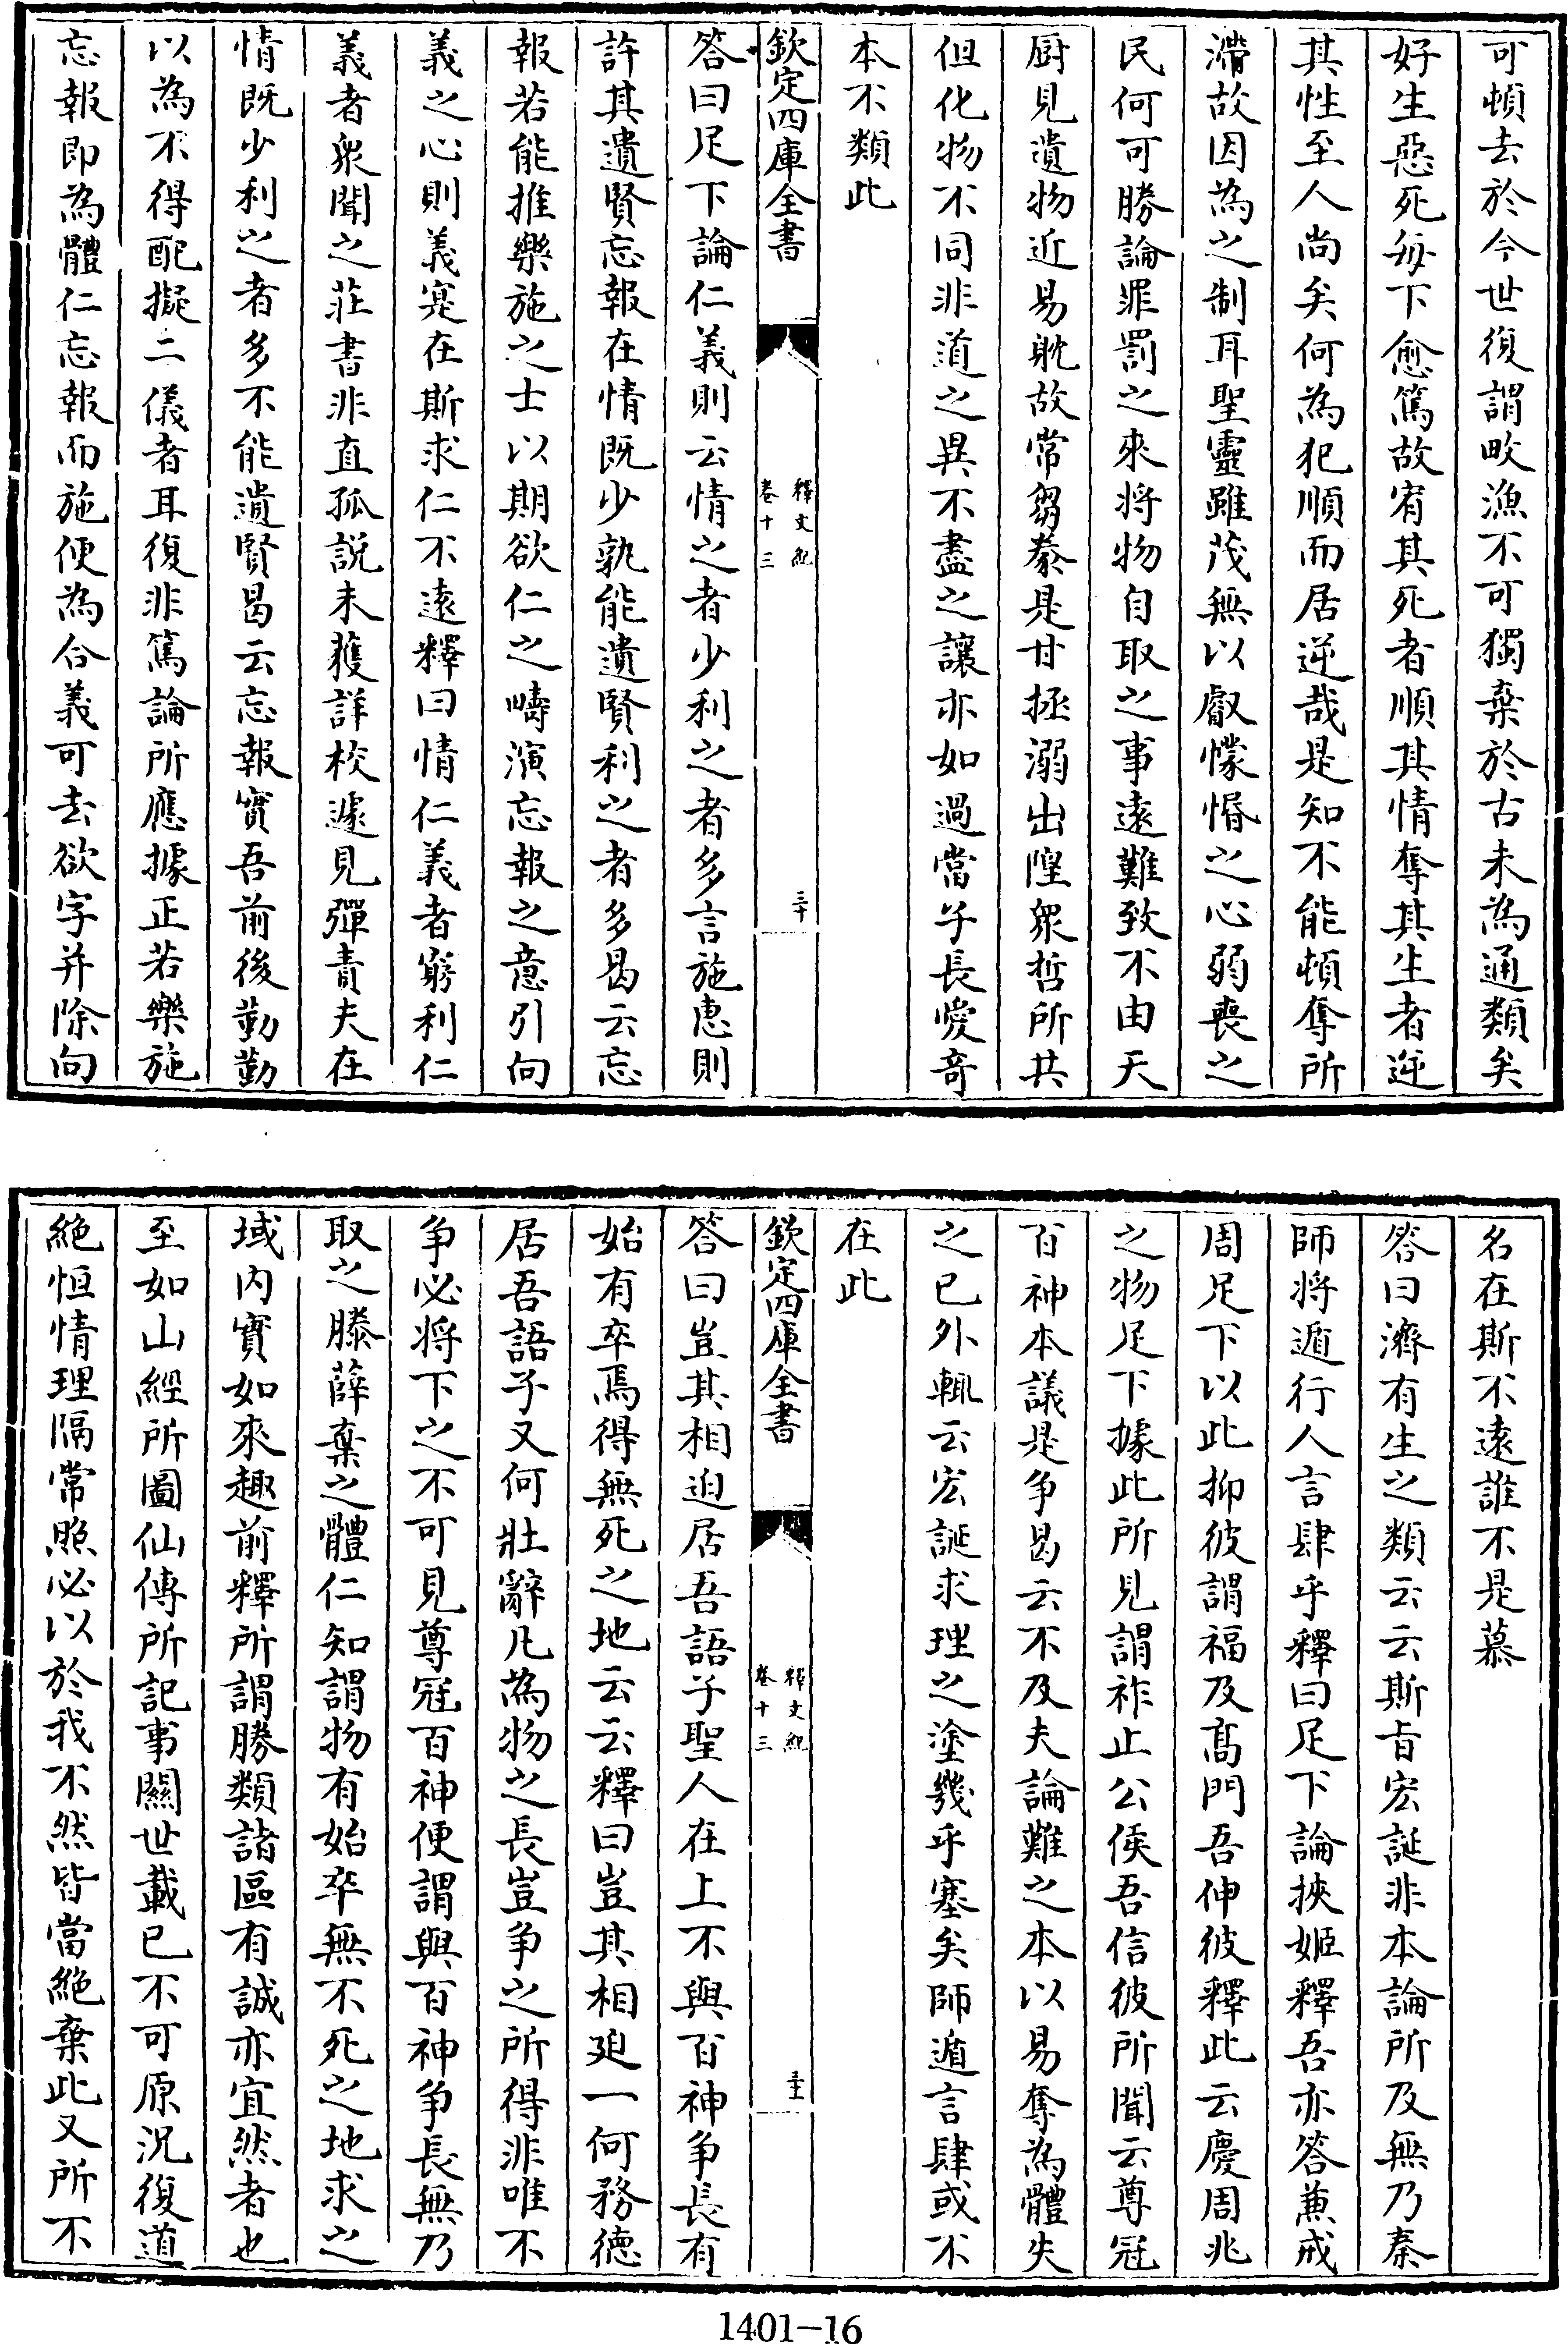 可頓去於今世復謂畋漁不可獨棄於古未為通類矣
好生惡死每下愈篤故宥其死者順其情奪其生者逆
其性至人尚矣何為犯順而居逆哉是知不能頓奪所
滯故因為之制耳聖靈雖茂無以叡懞惛之心弱喪之
民何可勝論罪罰之來將物自取之事遠難致不由天
厨見遺物近易躭故常芻豢是甘拯溺出隍衆哲所共
但化物不同非道之異不盡之讓亦如過當子長愛奇
本不類此
欽定四庫全書
釋文紀
卷十三
三十
答曰足下論仁義則云情之者少利之者多言施惠則
許其遺賢忘報在情既少孰能遺賢利之者多曷云忘
報若能推樂施之士以期欲仁之疇演忘報之意引向
義之心則義寔在斯求仁不遠釋曰情仁義者窮利仁
義者衆聞之莊書非直孤説未獲詳校遽見彈責夫在
情既少利之者多不能遺賢曷云忘報實吾前後勤勤
以為不得配擬二儀者耳復非篤論所應據正若樂施
忘報即為體仁忘報而施便為合義可去欲字并除向
名在斯不遠誰不是慕
答曰濟有生之類云云斯旨宏誕非本論所及無乃秦
師將遁行人言肆乎釋曰足下論挾姬釋吾亦答兼戒
周足下以此抑彼謂福及髙門吾伸彼釋此云慶周兆
之物足下據此所見謂祚止公侯吾信彼所聞云尊冠
百神本議是争曷云不及夫論難之本以易奪為體失
之已外輒云宏誕求理之塗幾乎塞矣師遁言肆或不
在此
欽定四庫全書
釋文紀
卷十三
三十一
答曰豈其相迫居吾語子聖人在上不與百神争長有
始有卒焉得無死之地云云釋曰豈其相廹一何務徳
居吾語子又何壯辭凡為物之長豈争之所得非唯不
争必將下之不可見尊冠百神便謂與百神争長無乃
取之滕薛棄之體仁知謂物有始卒無不死之地求之
域内實如來趣前釋所謂勝類諸區有誠亦宜然者也
至如山經所圖仙傳所記事關世載已不可原况復道
絶恒情理隔常照必以於我不然皆當絶棄此又所不
1401-16